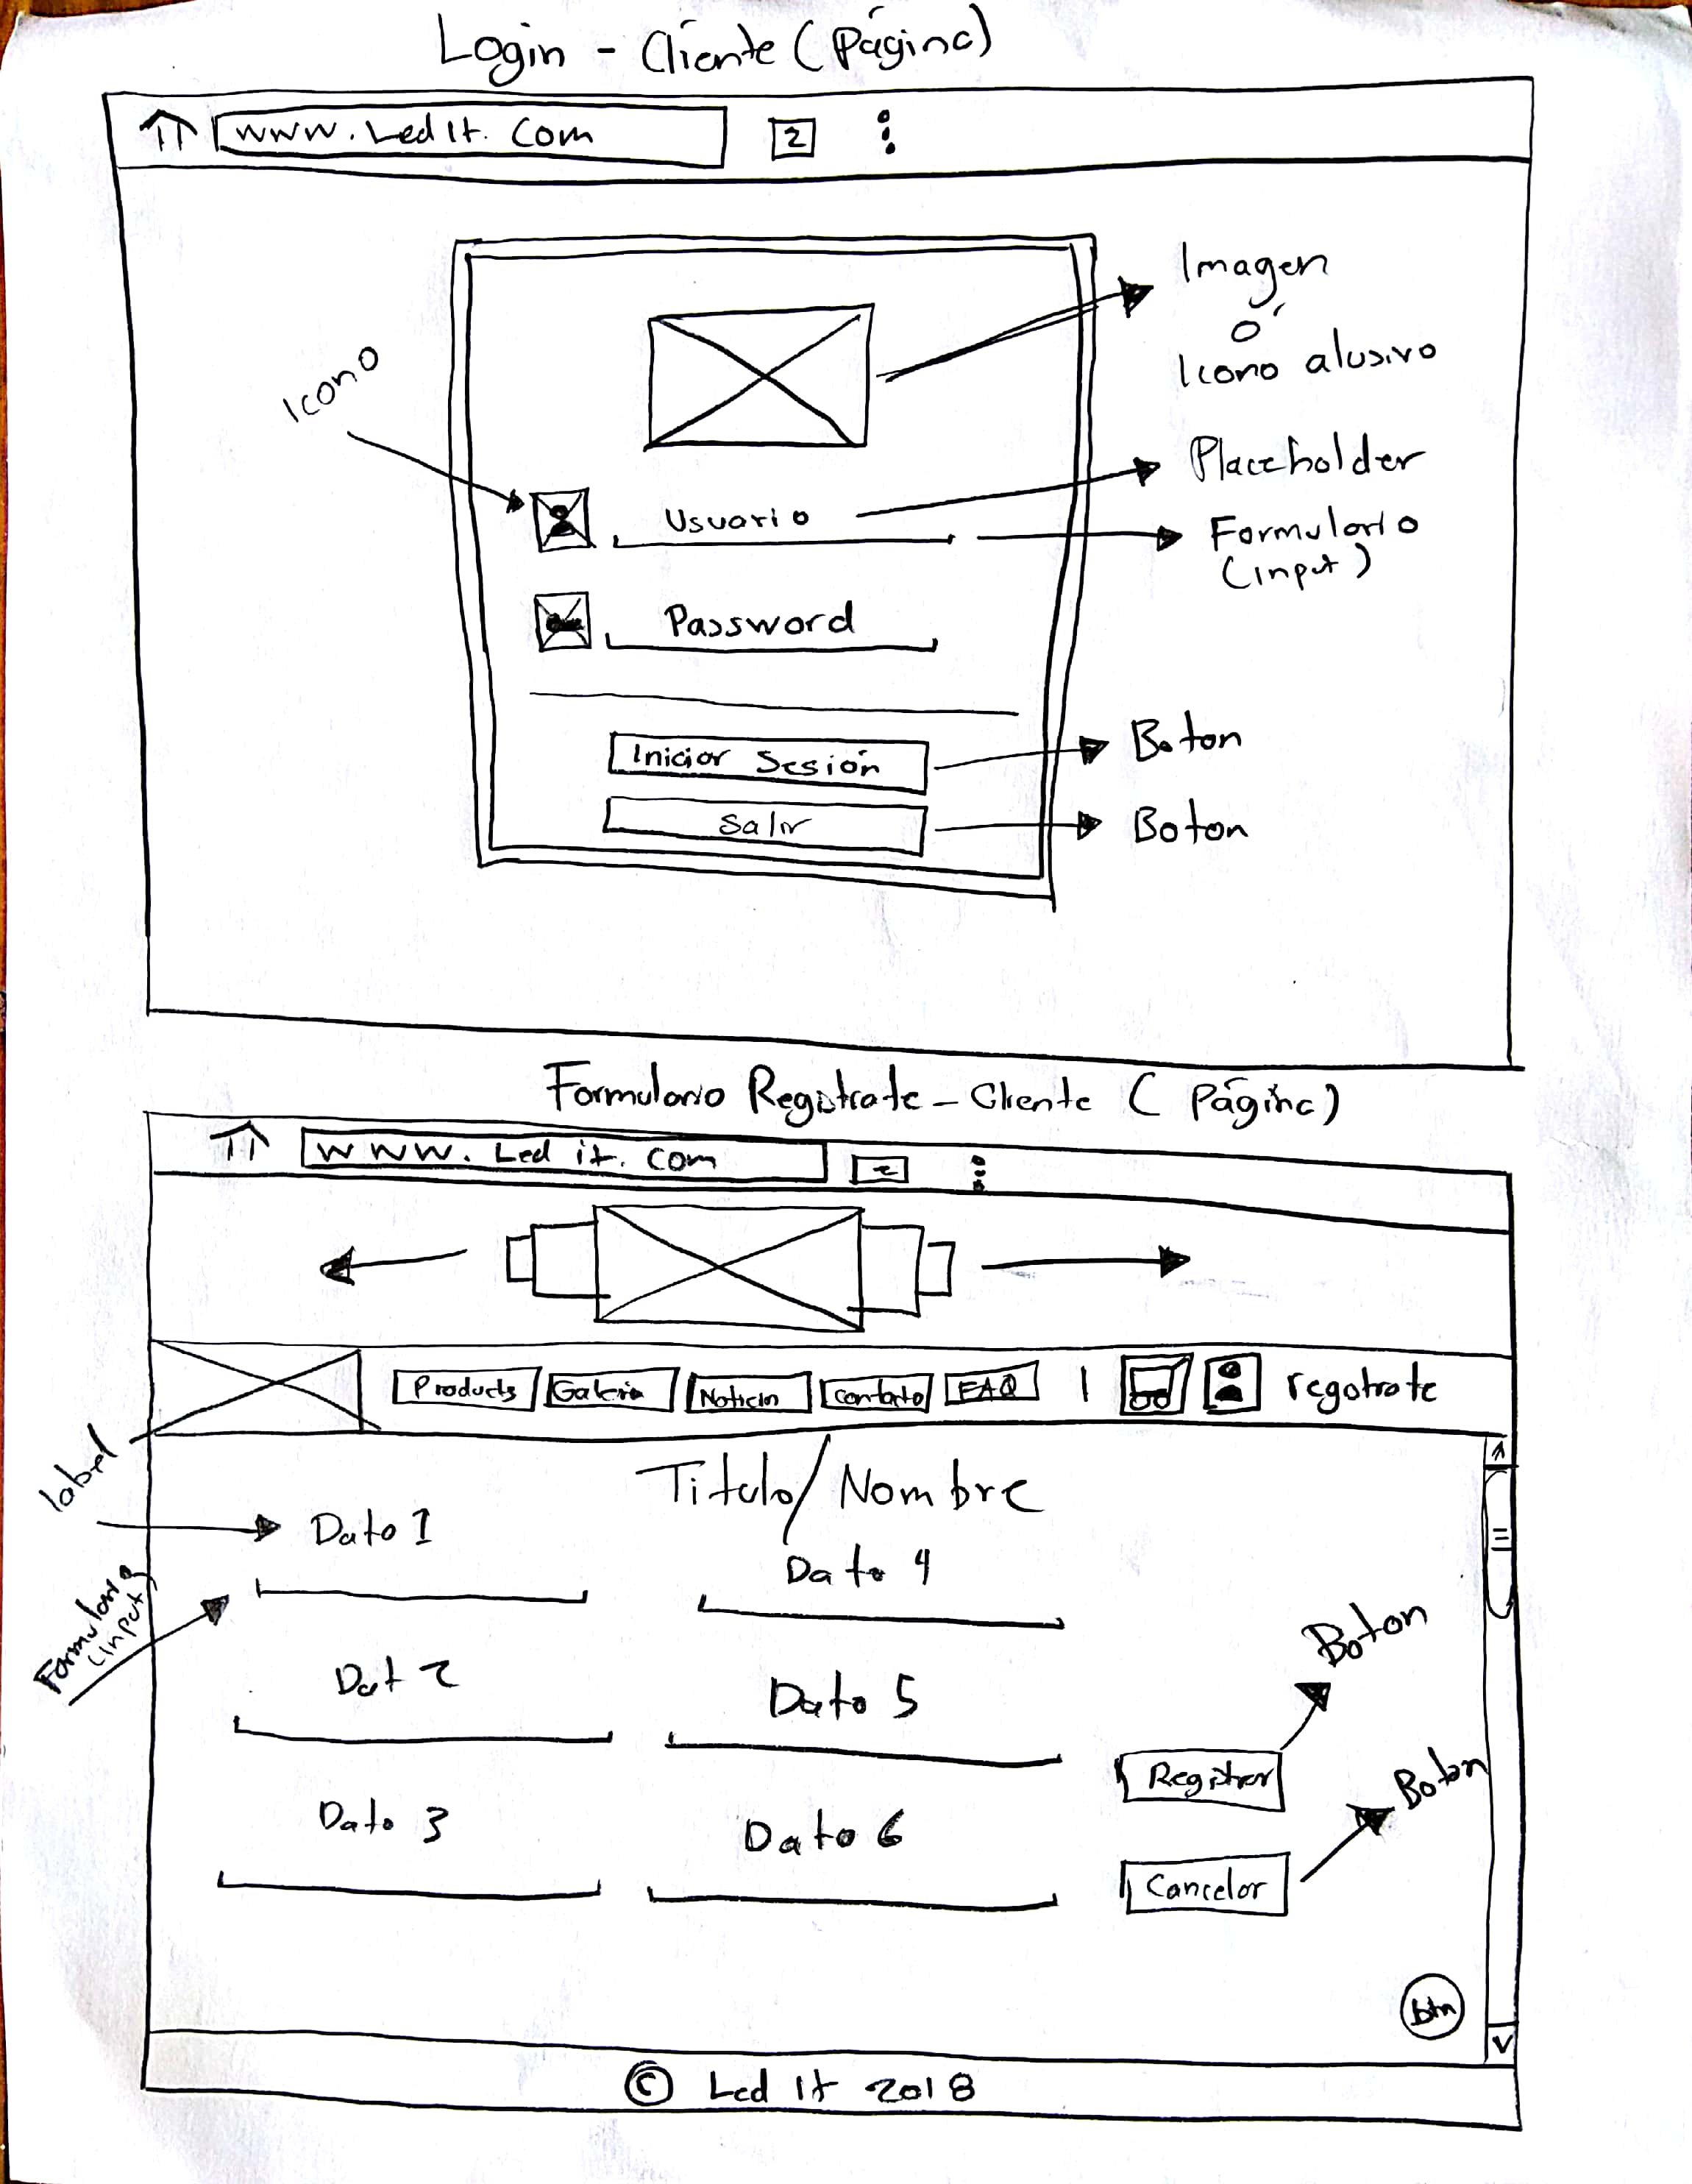 Login - Cliente (Página)
www.LedIt.com
2
Imagen
ó
Icono alusivo
Icono
Placeholder
Usuario
Formulario
(input)
Password
Boton
Iniciar Sesión
Salir
Boton
Formulario Registrate - Cliente (Página)
www.Led it.com
2
Products
Galeria
Noticin
Contacto
FAQ
registrate
label
Titulo/Nombre
Dato 1
Dato 4
Formulario
(input)
Boton
Dat 2
Dato 5
Registrar
Boton
Dato 3
Dato 6
Cancelar
btn
© Led It 2018